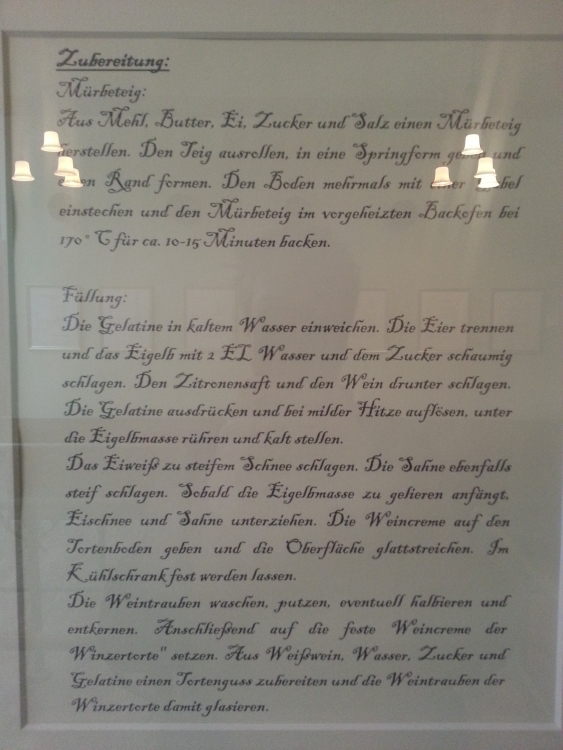 Zubereitung:
Mürbeteig:
Aus Mehl, Butter, Ei, Zucker und Salz einen Mürbeteig
herstellen. Den Teig ausrollen, in eine Springform geben und
einen Rand formen. Den Boden mehrmals mit einer Gabel
einstechen und den Mürbeteig im vorgeheizten Backofen bei
170° C für ca. 10-15 Minuten backen.
Füllung:
Die Gelatine in kaltem Wasser einweichen. Die Eier trennen
und das Eigelb mit 2 EL Wasser und dem Zucker schaumig
schlagen. Den Zitronensaft und den Wein drunter schlagen.
Die Gelatine ausdrücken und bei milder Hitze auflösen, unter
die Eigelbmasse rühren und kalt stellen.
Das Eiweiß zu steifem Schnee schlagen. Die Sahne ebenfalls
steif schlagen. Sobald die Eigelbmasse zu gelieren anfängt,
Eischnee und Sahne unterziehen. Die Weincreme auf den
Tortenboden geben und die Oberfläche glattstreichen. Im
Kühlschrank fest werden lassen.
Die Weintrauben waschen, putzen, eventuell halbieren und
entkernen. Anschließend auf die feste Weincreme der
Winzertorte" setzen. Aus Weißwein, Wasser, Zucker und
Gelatine einen Tortenguss zubereiten und die Weintrauben der
Winzertorte damit glasieren.